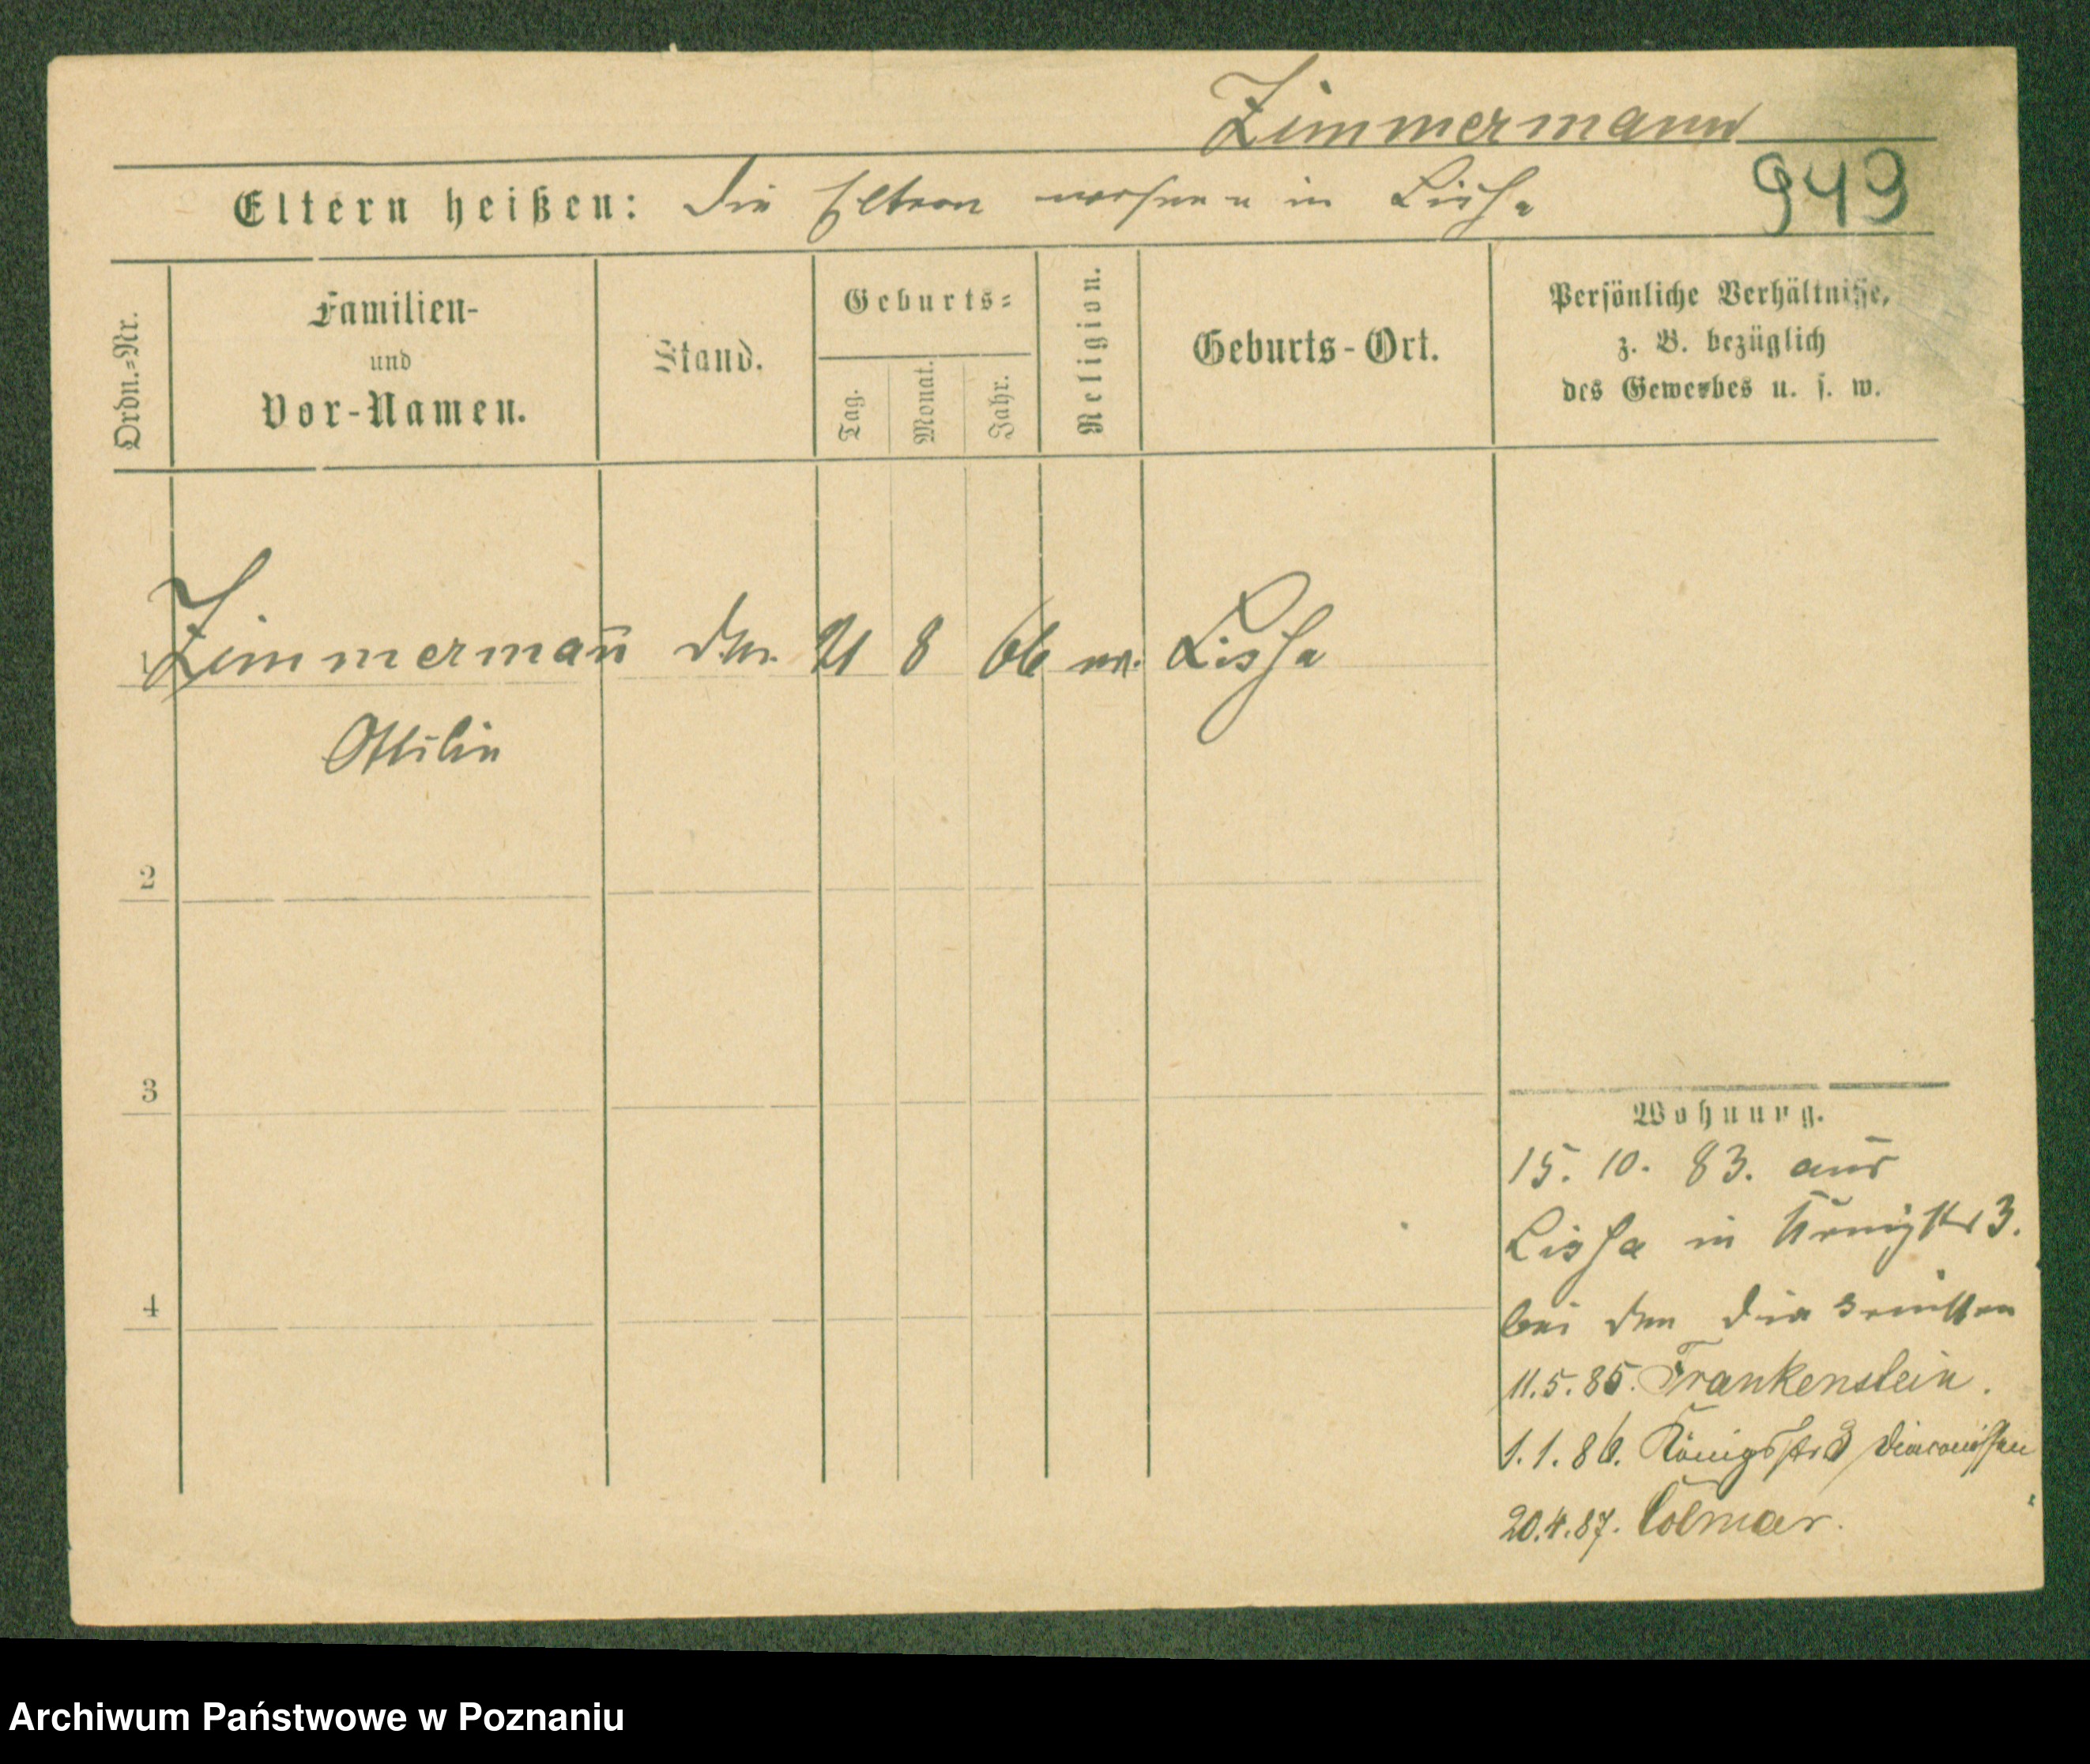 Zimmermann
949
Eltern heißen: Die Eltern wohnen in Lissa
Ordn.=Nr.
Familien-
und
Vor-Namen.
Stand.
Geburts=
Tag.
Monat.
Jahr.
Religion.
Geburts-Ort.
Persönliche Verhältnisse,
z. B. bezüglich
des Gewerbes u. s. w.
1 Zimmermañ 8 66 ev. Lissa
Ottilie
2
3
4
Wohnung.
15. 10. 83. aus
Lissa in Königstr 3.
bei den
11.5.85. Frankenstein.
1.1.86. Königsstr 3 Diaconissen
20.4.87. Colmar.
Archiwum Państwowe w Poznaniu